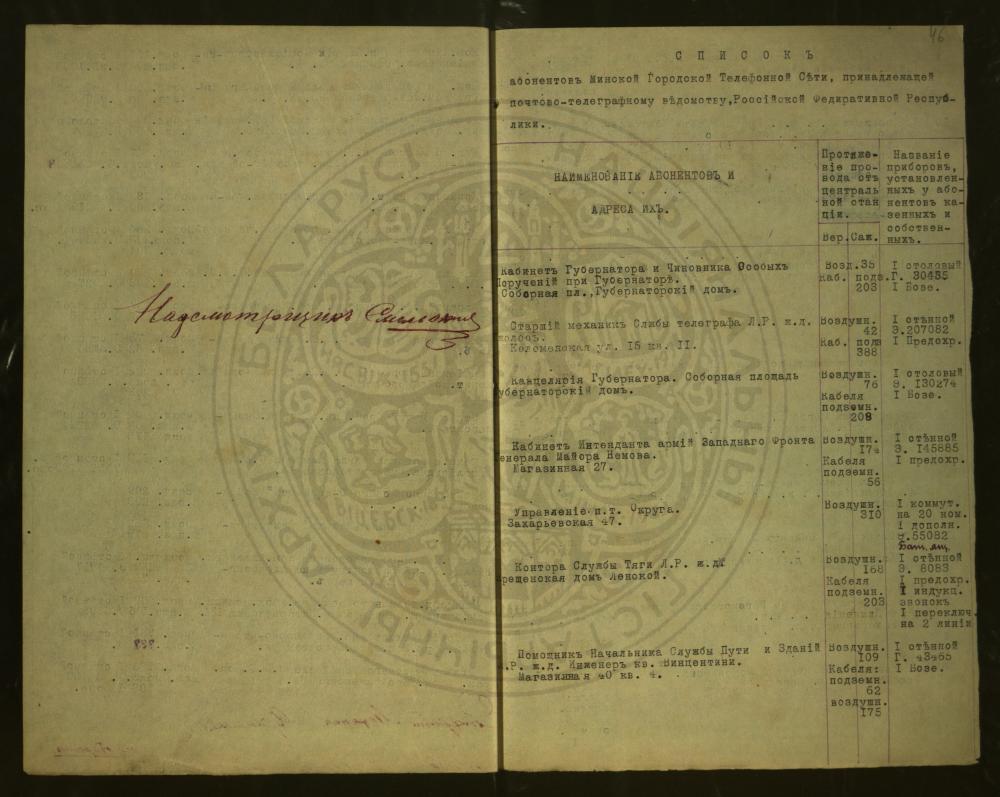 Надсмотрщикъ
46
СПИСОКЪ
абонентовъ Минской Городской Телефонной Сѣти, принадлежащей
почтово-телеграфному вѣдомству,Россійской Федиративной Респуб-
лики.
НАИМЕНОВАНІЕ АБОНЕНТОВЪ И
АДРЕСА ИХЪ.
Протяже-
ніе про-
вода отъ
централь
ной стан
ціи.
Вер.Саж.
Названіе
приборовъ,
установлен-
ныхъ у або-
нентовъ ка-
зенныхъ и
собствен-
ныхъ.
Кабинетъ Губернатора и Чиновника Особыхъ
Порученій при Губернаторѣ.
Соборная пл.,Губернаторскій домъ.
Возд.35
Каб. подз.
203
I столовый
Г. 30435
I Возе.
Старшій механикъ Слжбы телеграфа Л.Р. ж.д.
Коломенская ул. I5 кв. II.
Воздушн.
42
Каб. подз
388
I стѣнной
Э.207082
I Предохр.
Канцелярія Губернатора. Соборная площадь
убернаторскій домъ.
Воздушн.
76
Кабеля
подземн.
208
I столовый
Э. I30274
I Возе.
Кабинетъ Интенданта армій Западнаго Фронта
енерала Маіора Немова.
Магазинная 27.
Воздушн.
I74
Кабеля
подземн.
56
I стѣнной
Э. I45885
I предохр.
Управленіе п.т. Округа.
Захарьевская 47.
Воздушн.
3I0
I коммут.
на 20 ном.
I дополн.
Э.55082
Бат. ящ.
Контора Службы Тяги Л.Р. ж.д.
рещенская домъ Ленской.
Воздушн.
I68
Кабеля
подземн.
203
I стѣнной
Э. 8083
I предохр.
I индукц.
звонокъ
I переключ.
на 2 линіи
Помощникъ Начальника Службы Пути и Зданій
.Р. ж.д. Инженеръ кв. Винцентини.
Магазинная 40 кв. 4.
Воздушн.
I09
Кабеля:
подземн.
62
воздушн.
I75
I стѣнной
Г. 43465
I Возе.